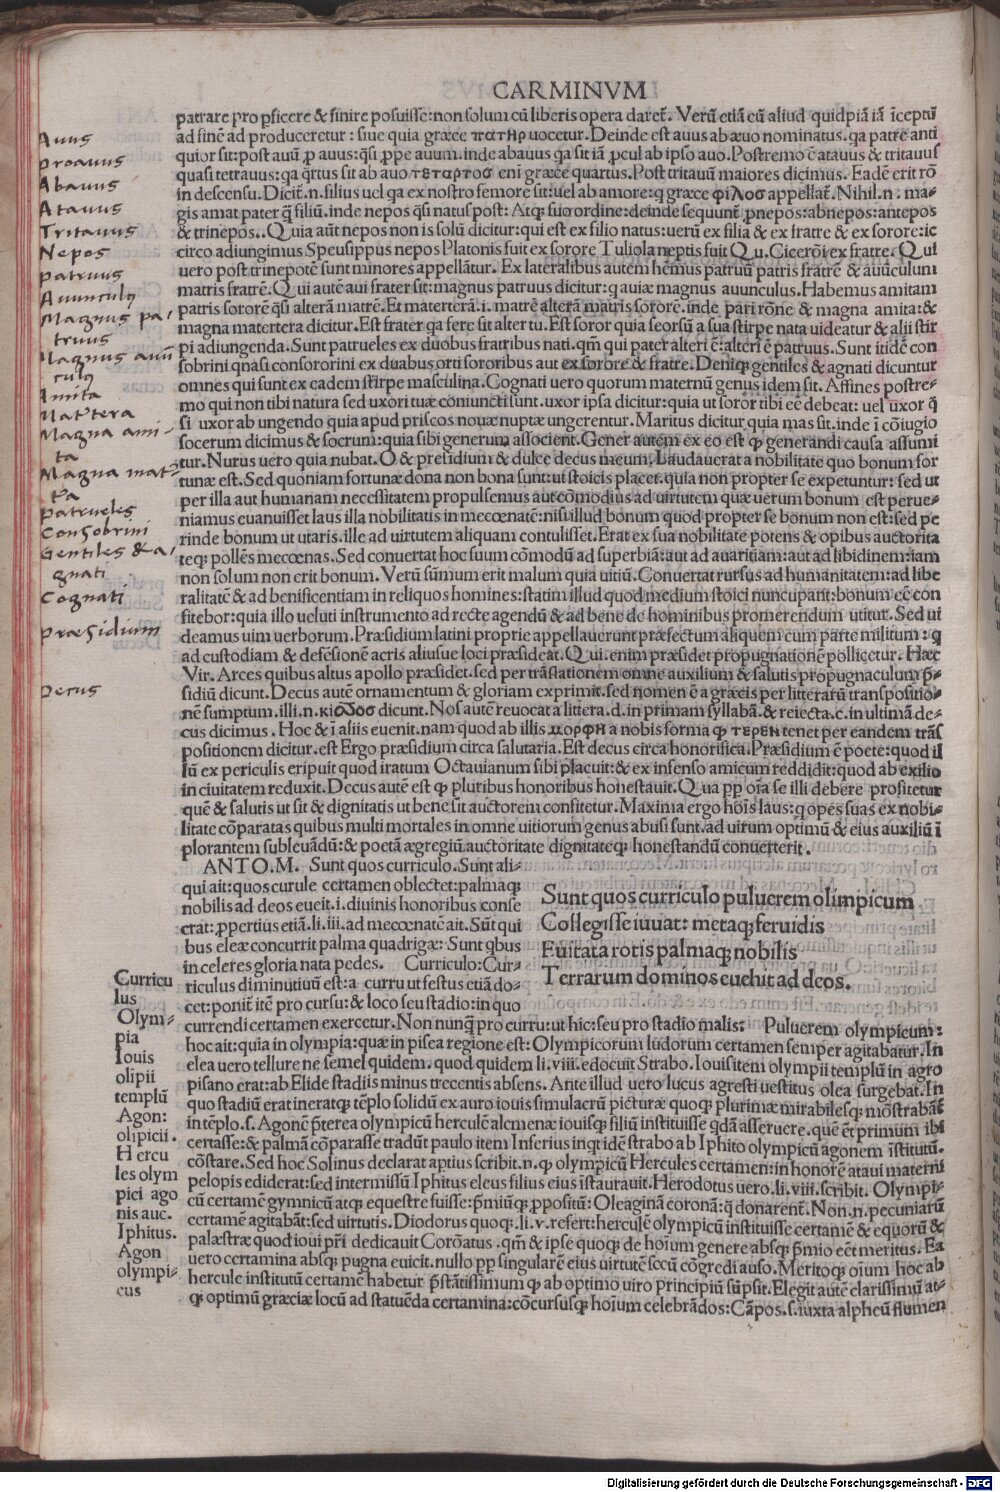 CARMINVM
patrare pro ꝑficere & finire posuisse: non solum cū liberis opera daret̄. Verū etiā cū aliud quidpiā iā īceptū
ad finē ad produceretur: siue quia græce πατηρ uocetur. Deinde est auus ab æuo nominatus. qa patre anti
quior sit: post auū ꝓ auus: q̄si ꝓpe auum. inde abauus qa sit iā ꝓcul ab ipso auo. Postremo ē atauus & tritauus
quasi tetrauus: qa q̄rtus sit ab auo τεταρτος eni græce quartus. Post tritauū maiores dicimus. Eadē erit rō
in descensu. Dicit̄. n. filius uel qa ex nostro femore sit: uel ab amore: q græce φιλος appellat̄. Nihil. n. ma-
gis amat pater q̄ filiū. inde nepos q̄si natus post: Atqꝫ suo ordine: deinde sequunt̄ ꝓnepos: abnepos: antepos
& trinepos.. Quia aūt nepos non is solū dicitur: qui est ex filio natus: uerū ex filia & ex fratre & ex sorore: ic
circo adiungimus Speusippus nepos Platonis fuit ex sorore Tuliola neptis fuit Q. u. Ciceroī ex fratre. Qui
uero post trinepotē sunt minores appellātur. Ex lateralibus autem hēmus patruū patris fratrē & auūculum
matris fratrē. Qui autē aui frater sit: magnus patruus dicitur: q auiæ magnus auunculus. Habemus amitam
patris sororē q̄si alterā matrē. Et materterā. i. matrē alterā matris sororē. inde pari rōne & magna amita: &
magna matertera dicitur. Est frater qa fere sit alter tu. Est soror quia seorsū a sua stirpe nata uideatur & alii stir
pi adiungenda. Sunt patrueles ex duobus fratribus nati. qm̄ qui pater alteri ē: alteri ē patruus. Sunt itidē con
sobrini qnasi consororini ex duabus orti sororibus aut ex sorore & fratre. Deniqꝫ gentiles & agnati dicuntur
omnes qui sunt ex eadem stirpe masculina. Cognati uero quorum maternū genus idem sit. Affines postre-
mo qui non tibi natura sed uxori tuæ coniuncti sunt. uxor ipsa dicitur: quia ut soror tibi eē debeat: uel uxor q̄
si uxor ab ungendo quia apud priscos nouæ nuptæ ungerentur. Maritus dicitur quia mas sit. inde ī cōiugio
socerum dicimus & socrum: quia sibi generum associent. Gener autem ex eo est qꝫ generandi causa assumi
tur. Nurus uero quia nubat. O & presidium & dulce decus meum. Laudauerat a nobilitate quo bonum for
tunæ est. Sed quoniam fortunæ dona non bona sunt: ut stoicis placet. quia non propter se expetuntur: sed ut
per illa aut humanam necessitatem propulsemus aut cōmodius ad uirtutem quæ uerum bonum est perue-
niamus euanuisset laus illa nobilitatis in mecœnatē: nisi illud bonum quod propter se bonum non est: sed pe
rinde bonum ut utaris. ille ad uirtutem aliquam contulisset. Erat ex sua nobilitate potens & opibus auctorita
teqꝫ pollēs mecœnas. Sed conuertat hoc suum cōmodū ad superbiā: aut ad auaritiam: aut ad libidinem: iam
non solum non erit bonum. Verū sūmum erit malum quia uitiū. Conuertat rursus ad humanitatem: ad libe
ralitatē & ad benificentiam in reliquos homines: statim illud quod medium stoici nuncupant: bonum eē con
fitebor: quia illo ueluti instrumento ad recte agendū & ad bene de hominibus promerendum utitur. Sed ui
deamus uim uerborum. Præsidium latini proprie appellauerunt præfectum aliquem cum parte militum: q
ad custodiam & defēsionē acris aliusue loci præsideat. Qui. enim præsidet propugnationē pollicetur. Hæc
Vir. Arces quibus altus apollo præsidet. sed per trāstationem omne auxilium & salutis propugnaculum p̄-
sidiū dicunt. Decus autē ornamentum & gloriam exprimit. sed nomen ē a græcis per litterarū transpositio-
nē sumptum. illi. n. κιδος dicunt. Nos autē reuocata littera. d. in primam syllabā. & reiecta. c. in ultimā de-
cus dicimus. Hoc & ī aliis euenit. nam quod ab illis μορφη a nobis forma qꝫ τερεν tenet per eandem trāſ
positionem dicitur. est Ergo præsidium circa salutaria. Est decus circa honorifica. Præsidium ē poete: quod il
lū ex periculis eripuit quod iratum Octauianum sibi placuit: & ex infenso amicum reddidit: quod ab exilio
in ciuitatem reduxit. Decus autē est qꝫ pluribus honoribus honestauit. Qua pp oīa se illi debere profitetur
quē & salutis ut sit & dignitatis ut bene sit auctorem confitetur. Maxima ergo hoīs laus: q opes suas ex nobi-
litate cōparatas quibus multi mortales in omne uitiorum genus abusi sunt. ad uirum optimū & eius auxiliū ī
plorantem subleuādū: & poetā ægregiū auctoritate dignitateqꝫ honestandū conuerterit.
ANTO. M. Sunt quos curriculo. Sunt ali-
qui ait: quos curule certamen oblectet: palmaqꝫ
nobilis ad deos euеit. i. diuinis honoribus conse
crat: ꝓpertius etiā. li. iii. ad mecœnatē ait. Sūt qui
bus eleæ concurrit palma quadrigæ: Sunt qbus
in celeres gloria nata pedes. Curriculo: Cur-
riculus diminutiuū est: a curru ut festus etiā do-
cet: ponit̄ itē pro cursu: & loco seu stadio: in quo
Sunt quos curriculo puluerem olimpicum
Collegisse iuuat: metaqꝫ feruidis
Euitata rotis palmaqꝫ nobilis
Terrarum dominos euehit ad deos.
currendi certamen exercetur. Non nunq̄ pro curru: ut hic: seu pro stadio malis: Puluerem olympicum:
hoc ait: quia in olympia: quæ in pisea regione est: Olympicorum ludorum certamen semper agitabatur. In
elea uero tellure ne semel quidem. quod quidem li. viii. edocuit Strabo. Iouis item olympii templū in agro
pisano erat: ab Elide stadiis minus trecentis absens. Ante illud uero lucus agresti uestitus olea surgebat. In
quo stadiū erat ineratqꝫ tēplo solidū ex auro iouis simulacrū picturæ quoqꝫ plurimæ mirabilesqꝫ mōstrabāt
in tēplo. s. Agonē p̄terea olympicū herculē alcmenæ iouisqꝫ filiū instituisse qdā asseruere. quē ēt primum ibi
certasse: & palmā cōparasse tradūt paulo item Inferius inqt idē strabo ab Iphito olympicū agonem īstitutū.
cōstare. Sed hoc Solinus declarat aptius scribit. n. qꝫ olympicū Hercules certamen: in honorē ataui materni
pelopis ediderat: sed intermissū Iphitus eleus filius eius īstaurauit. Herodotus uero. li. viii. scribit. Olympi-
cū certamē gymnicū atqꝫ equestre fuisse: p̄miūqꝫ ꝓpositū: Oleaginā coronā: q donarent̄. Non. n. pecuniarū
certamē agitabāt: sed uirtutis. Diodorus quoqꝫ. li. v. refert: herculē olympicū instituisse certamē & equorū &
palæstræ quod ioui pr̄i dedicauit Corōatus. qm̄ & ipse quoqꝫ de hoīum genere absqꝫ p̄mio eēt meritus. Ea
uero certamina absqꝫ pugna euicit. nullo pp singularē eius uirtutē secū cōgredi auso. Meritoqꝫ oīum hoc ab
hercule institutū certamē habetur p̄stātissimum qꝫ ab optimo uiro principiū sūpsit. Elegit autē clarissimū at-
qꝫ optimū græciæ locū ad statuēda certamina: cōcursusqꝫ hoīum celebrādos: Cāpos. s. iuxta alpheū flumen
Auus
proauus
Abauus
Atauus
Tritauus
Nepos
patruus
Auunculꝰ
Magnus pa-
truus
Magnus auū
culꝰ
Amita
Mat'tera
Magna ami-
ta
Magna mat'-
t'a
patrueles
Consobrini
Gentiles & a-
gnati
Cognati
præsidium
Decus
Curricu
lus
Olym-
pia
Iouis
olipii
templū
Agon:
olipicii.
Hercu
les olym
pici ago
nis auc.
Iphitus.
Agon
olympi-
cus
Digitalisierung gefördert durch die Deutsche Forschungsgemeinschaft - DFG